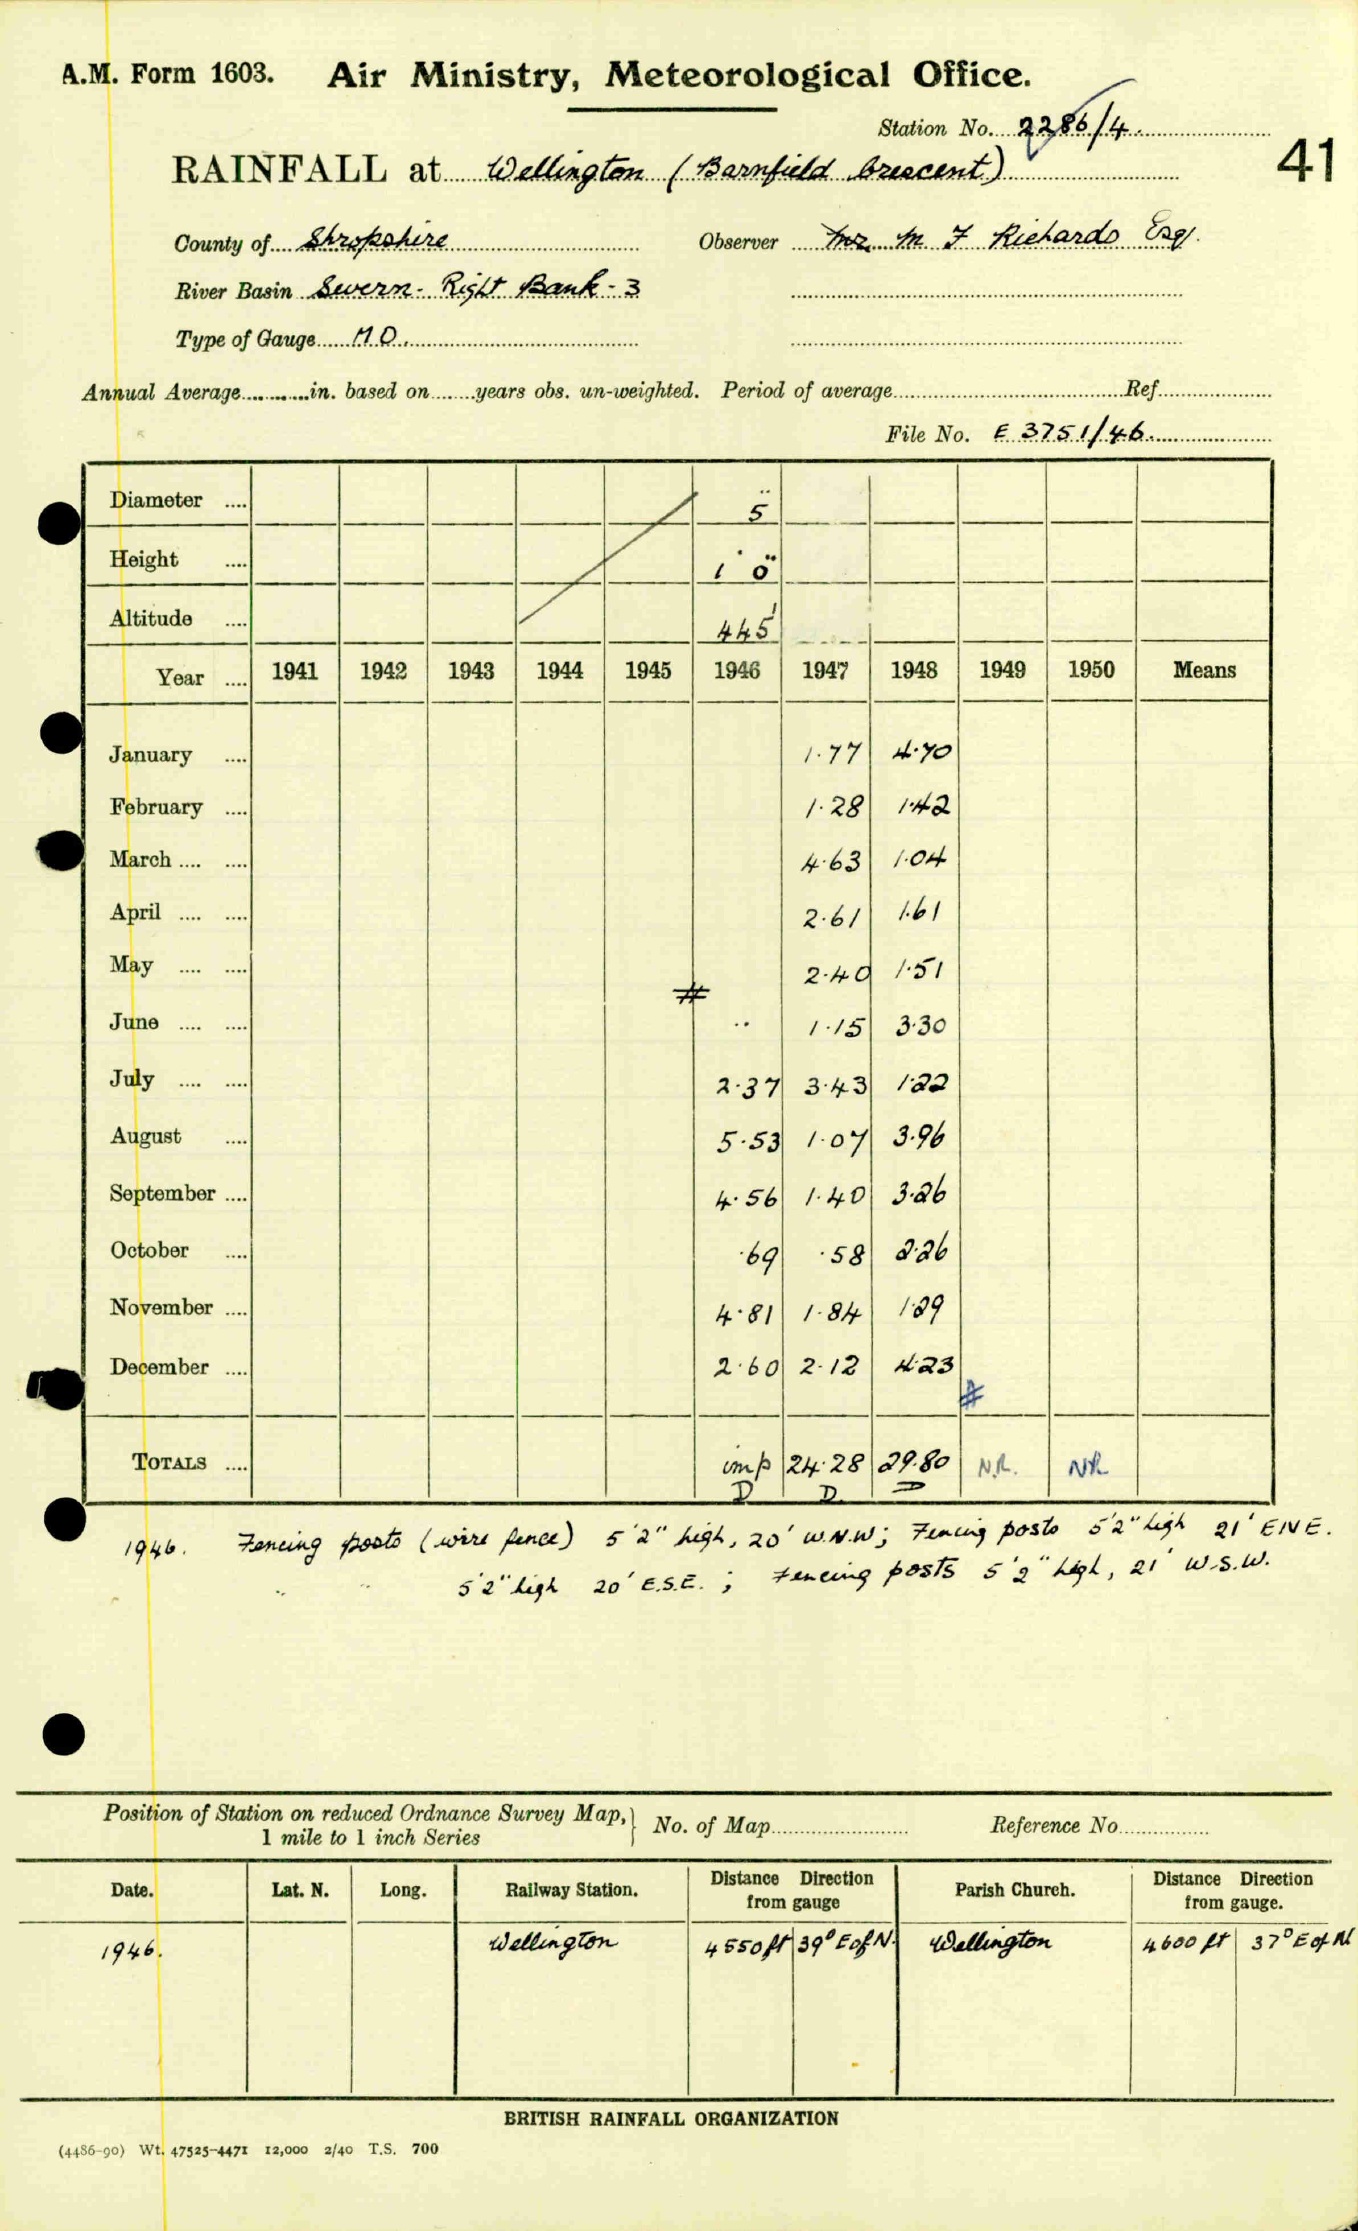 A.M. Form 1603. Air Ministry, Meteorological Office.
Station No. 2286/4.
RAINFALL at Wellington (Barnfield Crescent)
41
County of Shropshire Observer Mr M F Richards Esq.
River Basin Severn - Right Bank - 3
Type of Gauge MO.
Annual Average in. based on years obs. un-weighted. Period of average Ref
File No. E 3751/46.
Diameter .... 5"
Height .... 1' 0"
Altitude .... 445'
Year .... 1941 1942 1943 1944 1945 1946 1947 1948 1949 1950 Means
January .... 1.77 4.70
February .... 1.28 1.42
March .... .... 4.63 1.04
April .... .... 2.61 1.61
May .... .... 2.40 1.51
June .... .... .. 1.15 3.30
July .... .... 2.37 3.43 1.22
August .... 5.53 1.07 3.96
September .... 4.56 1.40 3.26
October .... .69 .58 2.26
November .... 4.81 1.84 1.29
December .... 2.60 2.12 4.23
TOTALS .... imp 24.28 29.80 N.R. NR
D D D
1946. Fencing posts (wire fence) 5'2" high, 20' W.N.W; Fencing posts 5'2" high 21' ENE.
" " 5'2" high 20' E.S.E. ; Fencing posts 5'2" high, 21' W.S.W.
Position of Station on reduced Ordnance Survey Map, 1 mile to 1 inch Series } No. of Map Reference No
Date. Lat. N. Long. Railway Station. Distance Direction from gauge Parish Church. Distance Direction from gauge.
1946. Wellington 4550 ft 39° E of N. Wellington 4600 ft 37° E of N
BRITISH RAINFALL ORGANIZATION
(4486-90) Wt. 47525-4471 12,000 2/40 T.S. 700